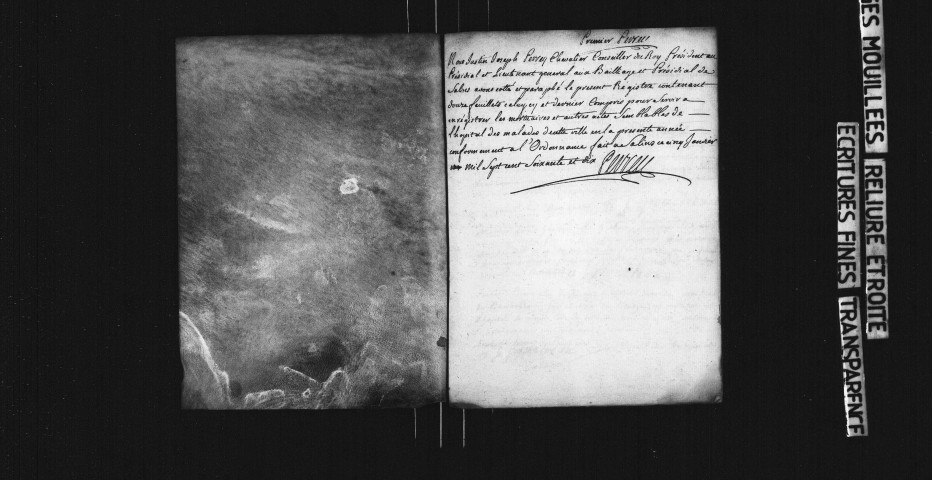 Premier Perrey
Nous Justin Joseph Perrey Chevalier Conseiller du Roy Président au
Présidial et Lieutenant general aux Bailliage et Présidial de
Salins avons cotté et paraphé le present Registre contenant
douze feuillets celuy cy et dernier Compris pour servir a
enrégistrer les mortuaires et autres actes Semblables de
l'hopital des malades de cette ville en la presente année
conformement a l'Ordonnance fait a Salins ce cinq Janvier
mil Sept cent Soixante et dix Perrey
MOUILLEES
RELIURE ETROITE
ECRITURES FINES
TRANSPARENCE